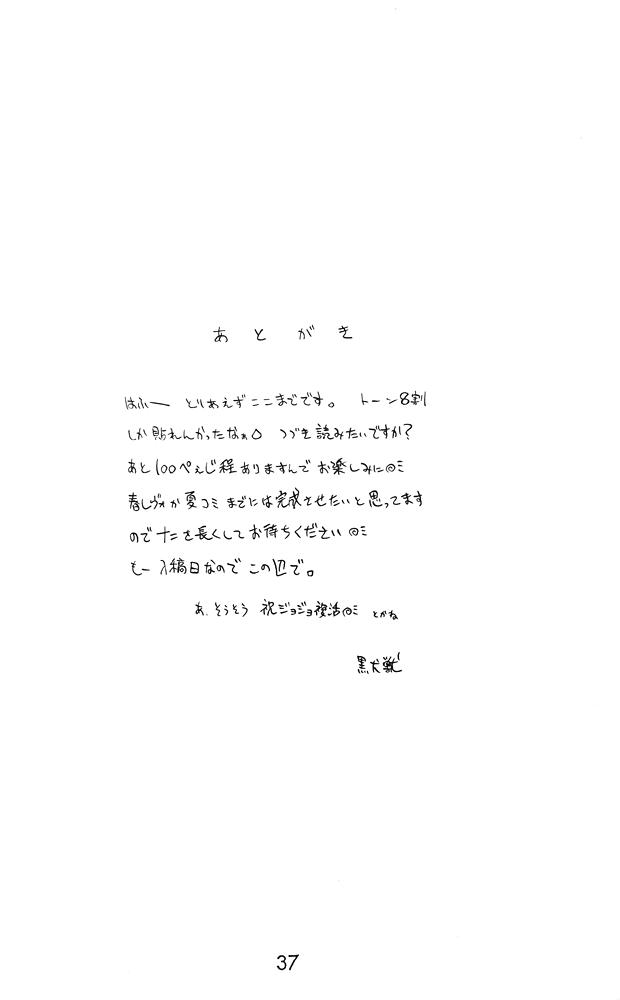 あとがき
はふー とりあえずここまでです。 トーン8割
しか貼れんかったなぁ つづき読みたいですか?
あと100ぺぇじ程ありますんでお楽しみに
春レヴォか夏コミまでには完成させたいと思ってます
ので十二を長くしてお待ちください
もー入稿日なのでこの辺で。
あ、そうそう 祝ジョジョ復活 とかね
黒犬獣
37